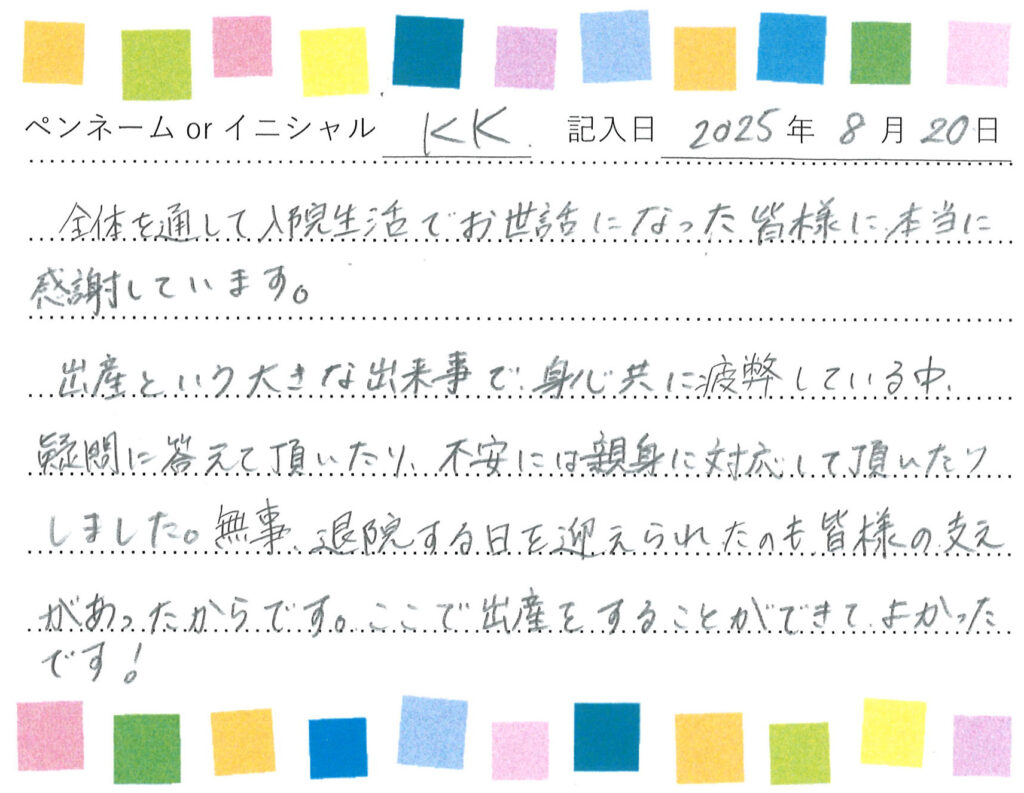 ペンネーム or イニシャル KK. 記入日 2025年 8月 20日
全体を通して入院生活でお世話になった皆様に本当に
感謝しています。
出産という大きな出来事で、身心共に疲弊している中、
疑問に答えて頂いたり、不安には親身に対応して頂いたり
しました。無事、退院する日を迎えられたのも皆様の支え
があったからです。ここで出産をすることができて、よかった
です!